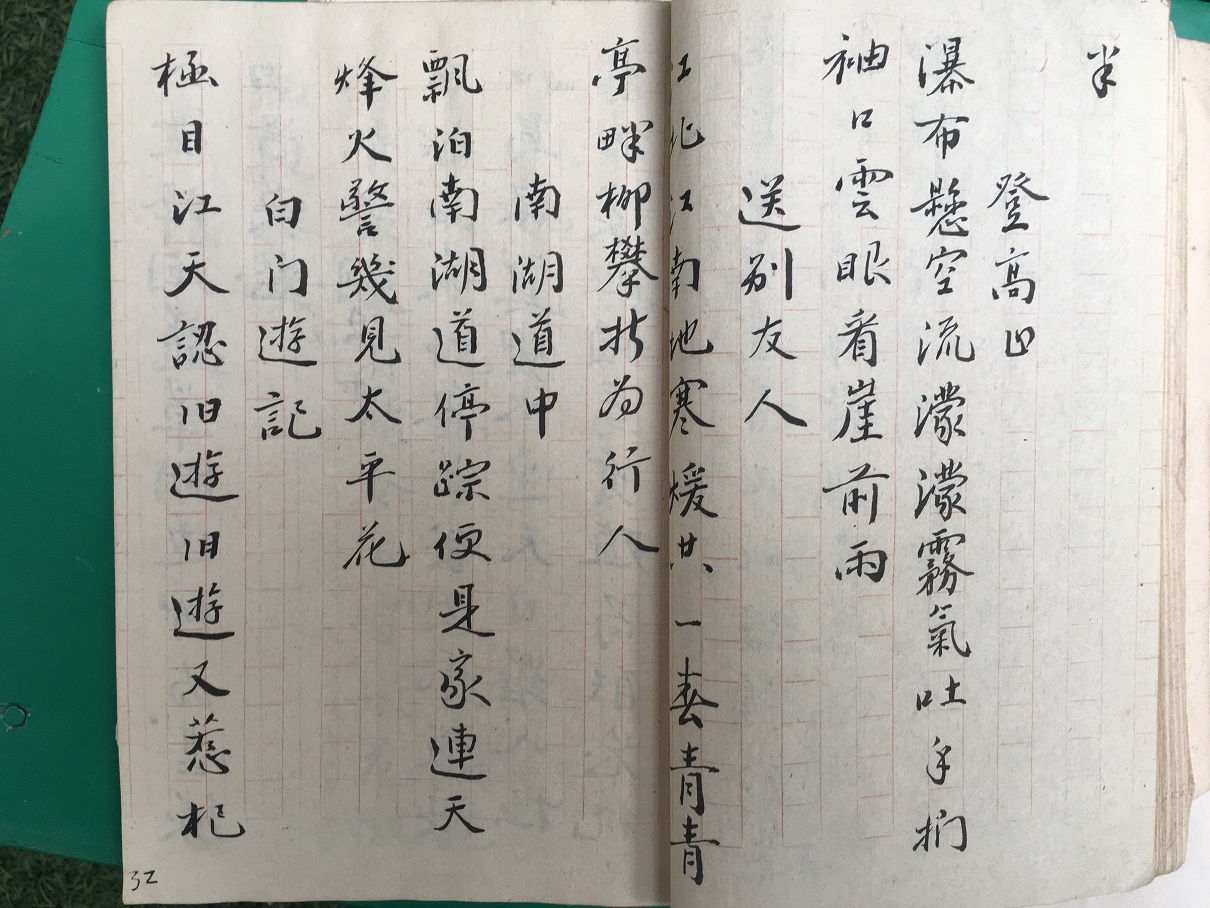 半
登高山
瀑布懸空流濛濛霧氣吐手捫
袖口雲眼看崖前雨
送别友人
江北江南地寒煖共一春青青
亭畔柳攀折为行人
南湖道中
飄泊南湖道停踪便是家連天
烽火警幾見太平花
白门遊記
極目江天認旧遊旧遊又惹杞
32